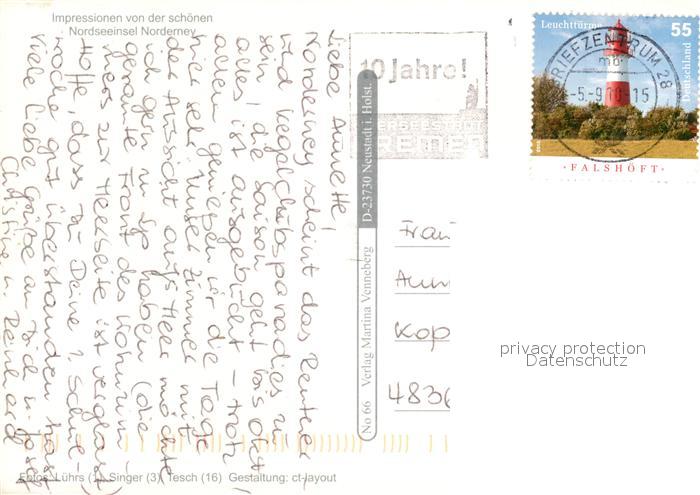 Impressionen von der schönen
Nordseeinsel Norderney
Liebe Annette!
Norderney scheint das Rentner
und Kegelclubsparadies zu
sein, die Saison geht bis Okt.,
alles ist ausgebucht – trotz
allem genießen wir die Tage
sehr. Unser Zimmer mit
der Aussicht aufs Meer möchte
ich gern zu Hp haben (die
gesamte Front des Wohnzim-
mers zur Meerseite ist verglast)
Hoffe, dass Du Deine 2. Schul-
woche gut überstanden hast
Viele liebe Grüße an Dich u. Josef
Christine u. Reinhard
Fotos: Lührs (1), Singer (3), Tesch (16) Gestaltung: ct-layout
No 66 Verlag Martina Venneberg D-23730 Neustadt i. Holst.
10 Jahre!
BREMER
BRIEFZENTRUM 28
mb
-5.-9.10-15
Leuchttürme
55
Deutschland
2010
· FALSHÖFT ·
Frau
Ann
Kop
4836
privacy protection
Datenschutz